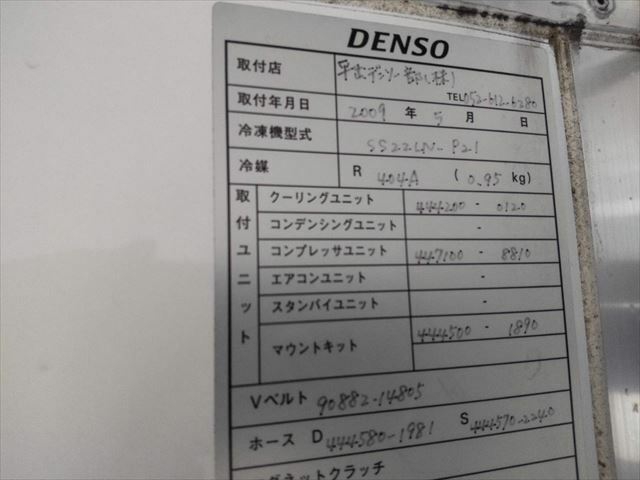 DENSO
取付店
TEL 052-612-6280
取付年月日 2009 年 5 月 日
冷凍機型式 SS22LN-P21
冷媒 R 404A (0.95 kg)
取付ユニット
クーリングユニット 444200 - 0120
コンデンシングユニット -
コンプレッサユニット 447100 - 8810
エアコンユニット -
スタンバイユニット -
マウントキット 444500 - 1890
Vベルト 90882-14805
ホース D 444580-1981 S 444570-2240
グネットクラッチ